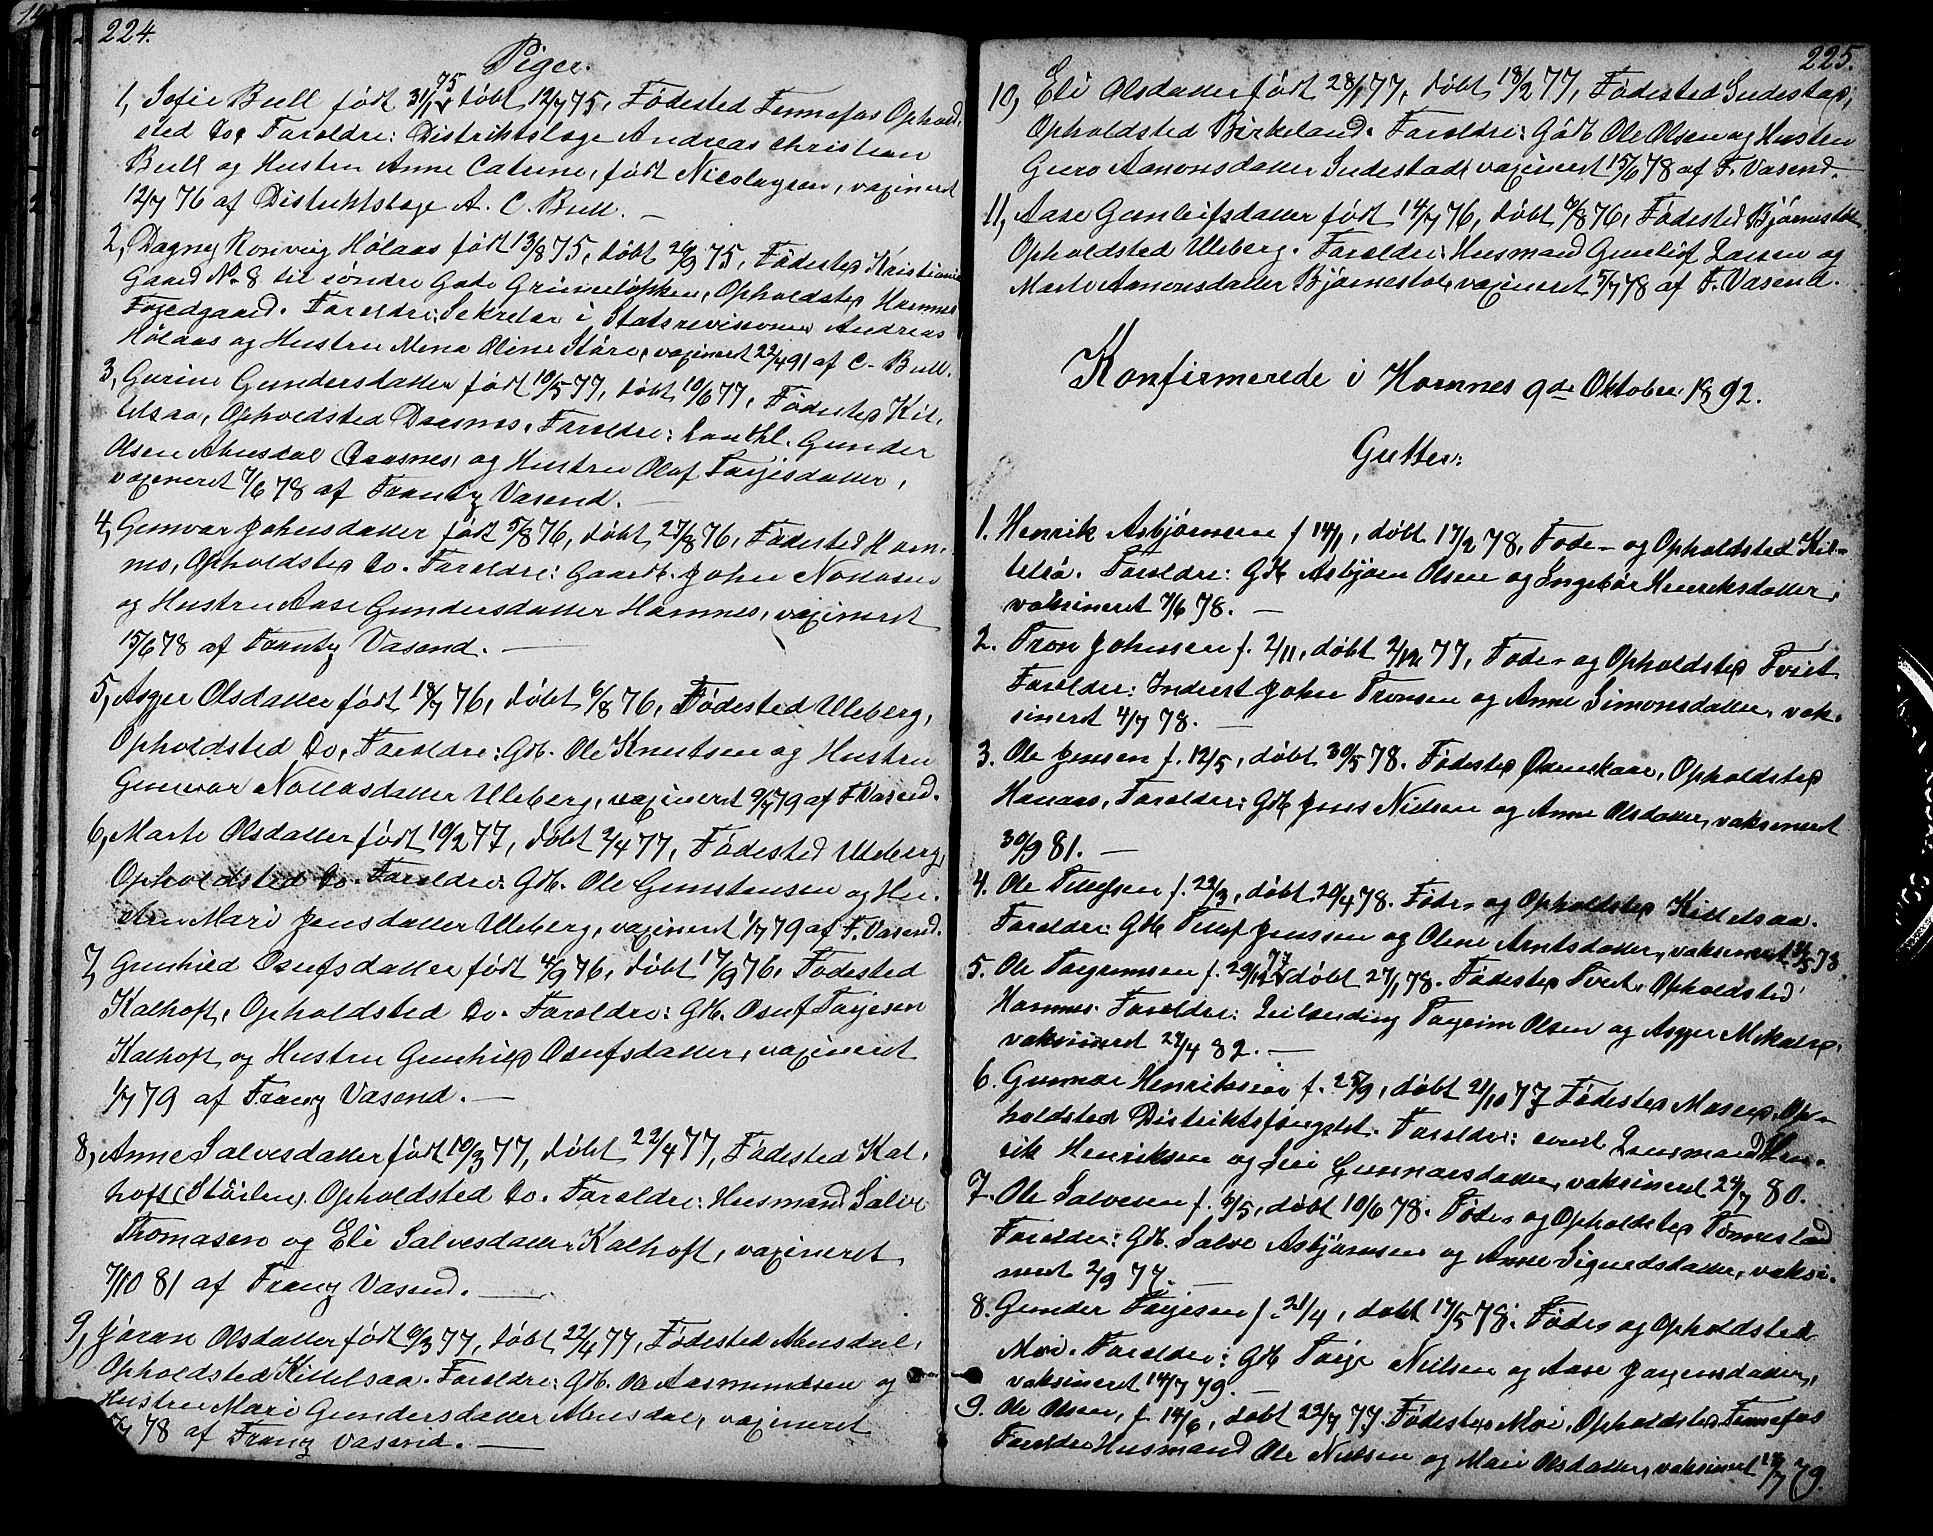 224.
Piger.
1, Sofie Bull født 31/12 75, døbt 12/7 75, Fødested Fennefos Ophold-
sted do, Foreldre: Distriktslæge Andreas Christian
Bull og Hustru Anne Catrine, født Nicolaysen, vaxineret
12/7 76 af Distriktslæge A. C. Bull. —
2, Dagny Ronveig Holaas født 13/8 75, døbt 26/9 75, Fødested Kristiania
Gaard No 8 til søndre Gade Grüneløkken, Opholdsted Hornnes
Fogedgaard. Foreldre: Sekretær i Statsrevisionen Andreas
Holaas og Hustru Mina Oline Støre, vaxineret 22/4 91 af C. Bull.
3, Gurine Gundersdatter født 10/5 77, døbt 10/6 77, Fødested Kit-
telsaa, Opholdsted Daasnes. Foreldre: Gunder
Olsen Abusdal (Daasnes) og Hustru Olaf Targjesdatter,
vaxineret 7/6 78 af Frantz Vasend. —
4, Gunvor Johnsdatter født 5/8 76, døbt 27/8 76, Fødested Horn-
nes, Opholdsted do. Foreldre: Gaardb. John Nottosen
og Hustru Aase Gundersdatter Hornnes, vaxineret
15/6 78 af Frantz Vasend. —
5, Asger Olsdatter født 18/7 76, døbt 6/8 76, Fødested Uleberg,
Opholdsted do, Foreldre: Gdb. Ole Knutsen og Hustru
Gunvor Nottosdatter Uleberg, vaxineret 9/7 79 af F. Vasend.
6, Marte Olsdatter født 10/2 77, døbt 2/4 77, Fødested Uleberg,
Opholdsted do. Foreldre: Gdb. Ole Gunstensen og Hu-
stru Mari Jensdatter Uleberg, vaxineret 1/7 79 af F. Vasend.
7, Gunhild Osufsdatter født 4/9 76, døbt 17/9 76, Fødested
Kalhoft, Opholdsted do. Foreldre: Gdb. Osuf Targjesen
Kalhoft og Hustru Gunhild Osufsdatter, vaxineret
1/7 79 af Franz Vasend. —
8, Anne Salvesdatter født 10/3 77, døbt 22/4 77, Fødested Kal-
hoft (Stølen) Opholdsted do. Foreldre: Husmand Salve
Thomasen og Eli Salvesdatter Kalhoft, vaxineret
7/10 81 af Franz Vasend. —
9, Jøran Olsdatter født 6/3 77, døbt 22/4 77, Fødested Abusdal,
Opholdsted Kittelsaa. Foreldre: Gdb. Ole Aasmundsen og
Hustru Mari Gundersdatter Abusdal, vaxineret
78 af Franz Vasend. —
225.
10, Eli Olsdatter født 28/1 77, døbt 18/2 77, Fødested Sudestad,
Opholdsted Birkeland. Foreldre: Gdb. Ole Olsen og Hustru
Guro Aamonsdatter Sudestad, vaxineret 15/6 78 af F. Vasend. —
11, Aase Gunleifsdatter født 14/7 76, døbt 6/8 76, Fødested Bjørnestøl
Opholdsted Uleberg. Foreldre: Husmand Gunleif Larsen og
Marte Aamonsdatter Bjørnestøl, vaxineret 5/7 78 af F. Vasend.
Konfirmerede i Hornnes 9de Oktober 1892.
Gutter:
1. Henrik Asbjørnsen f 14/1, døbt 17/2 78, Føde- og Opholdsted Kit-
telså. Foreldre: Gdb Asbjørn Olsen og Ingebør Henriksdatter,
vaksineret 7/6 78. —
2. Tron Johnsen f. 2/11, døbt 2/12 77, Føde- og Opholdsted Tveit
Foreldre: Inderst John Tronsen og Anne Simonsdatter, vak-
sineret 4/7 78. —
3. Ole Jensen f. 12/5, døbt 30/5 78. Fødested Odenskaar, Opholdsted
Hanaas, Foreldre: Gdb Jens Nielsen og Anne Olsdatter, vaksineret
30/9 81. —
4. Ole Tellefsen f. 22/3, døbt 20/4 78. Føde- og Opholdsted Kittelsaa.
Foreldre: Gdb Tellef Jenssen og Oline Arntsdatter, vaksineret 78
5. Ole Torgrimsen f. 29/12 77 døbt 27/1 78. Fødested Tveit, Opholdsted
Hornnes. Foreldre: Leilænding Torgrim Olsen og Asger Mikalsd.
vaksineret 27/4 82. —
6. Gunnar Henriksen f. 25/9, døbt 21/10 77 Fødested Moseid, Op-
holdsted Distriktsfængslet. Foreldre: const Lensmand Hen-
rik Henriksen og Siri Gunnarsdatter, vaksineret 24/7 80.
7. Ole Salvesen f. 6/5, døbt 10/6 78. Føde- og Opholdsted Tønnesland
Foreldre: Gdb. Salve Asbjørnsen og Anne Sigurdsdatter, vaksi-
neret 2/9 77. —
8. Gunder Targjesen f. 21/4, døbt 17/5 78. Føde- og Opholdsted
Moi. Foreldre: Gdb Targje Nielsen og Aase Jørgensdatter,
vaksineret 14/7 79. —
9. Ole Olsen, f. 14/6, døbt 22/7 77. Fødested Moi, Opholdsted Fennefos
Foreldre Husmand Ole Nielsen og Mari Olsdatter, vaksineret 79.